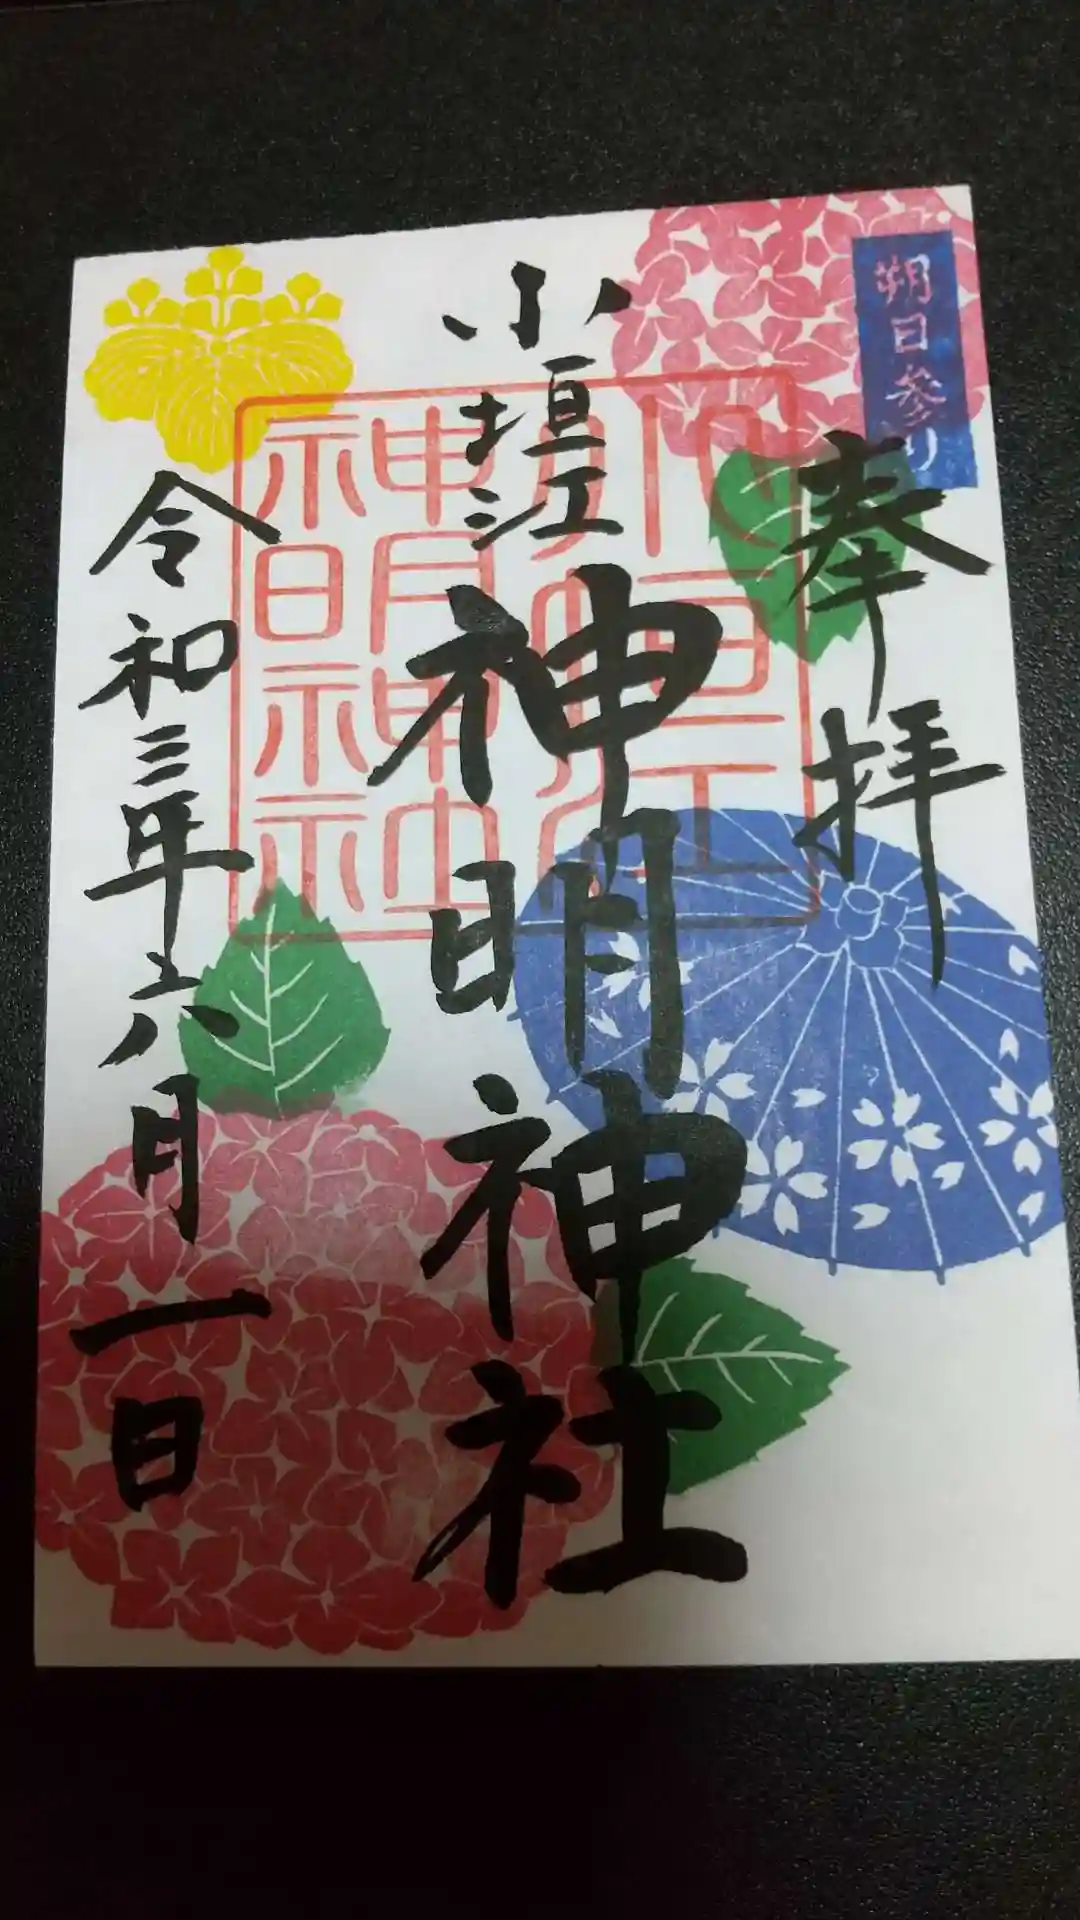 朔日参り
奉拝
小垣江
神明神社
令和三年六月一日
小垣江
神明神
明神社